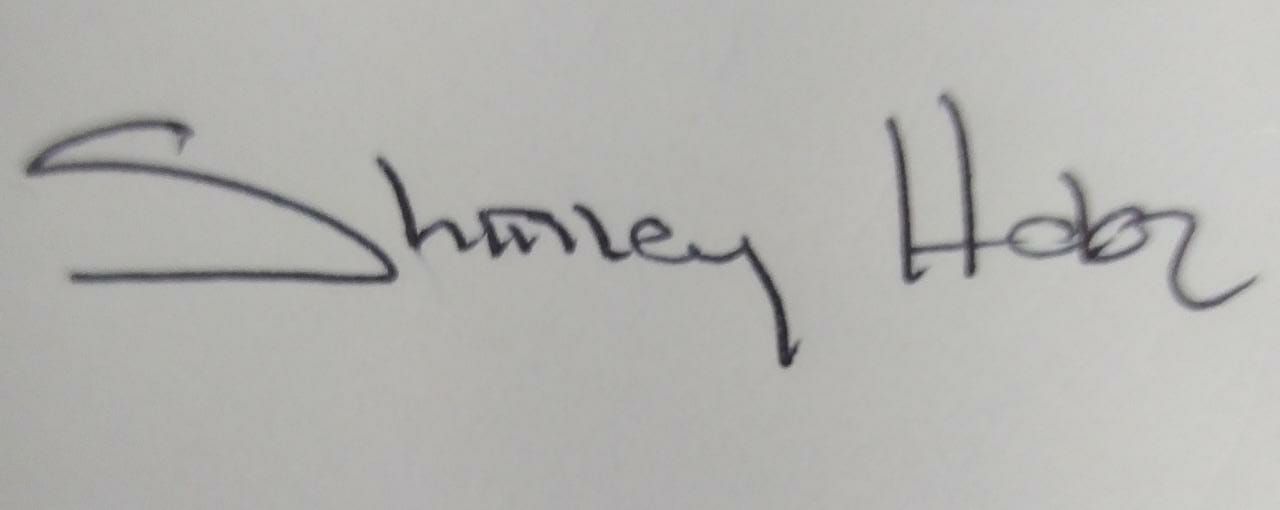 Shirley Hdez